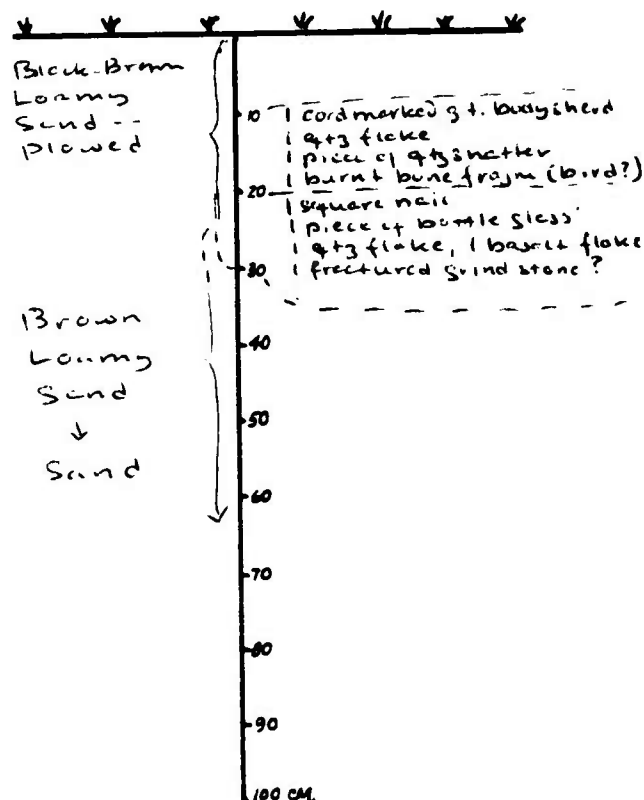 Black-Brown
Loamy
Sand --
Plowed
10
1 cordmarked g.t. bodysherd
1 qtz flake
1 piece of qtz shatter
1 burnt bone fragm (bird?)
20
1 square nail
1 piece of bottle glass
1 qtz flake, 1 basalt flake
30
1 fractured grindstone?
Brown
Loamy
Sand
↓
Sand
40
50
60
70
80
90
100 CM.